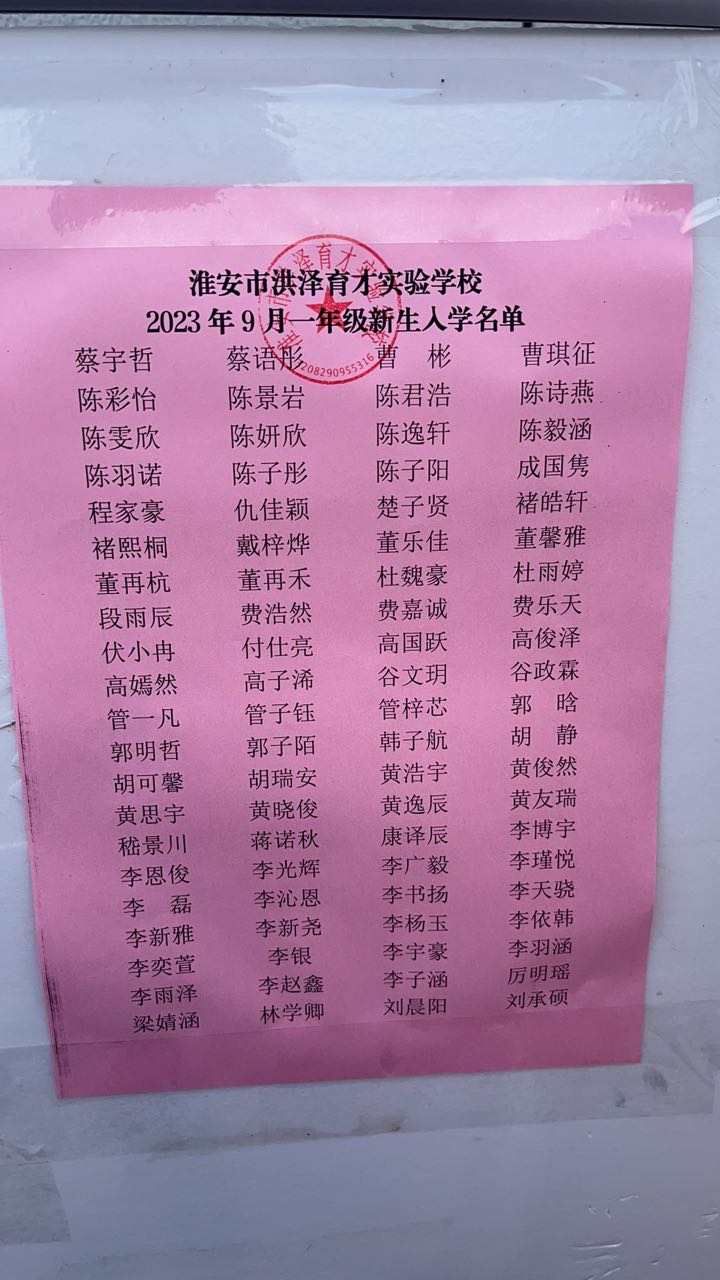 淮安市洪泽育才实验学校
2023年9月一年级新生入学名单
蔡宇哲 蔡语彤 曹 彬 曹琪征
陈彩怡 陈景岩 陈君浩 陈诗燕
陈雯欣 陈妍欣 陈逸轩 陈毅涵
陈羽诺 陈子彤 陈子阳 成国隽
程家豪 仇佳颖 楚子贤 褚皓轩
褚熙桐 戴梓烨 董乐佳 董馨雅
董再杭 董再禾 杜魏豪 杜雨婷
段雨辰 费浩然 费嘉诚 费乐天
伏小冉 付仕亮 高国跃 高俊泽
高嫣然 高子浠 谷文玥 谷政霖
管一凡 管子钰 管梓芯 郭 晗
郭明哲 郭子陌 韩子航 胡 静
胡可馨 胡瑞安 黄浩宇 黄俊然
黄思宇 黄晓俊 黄逸辰 黄友瑞
嵇景川 蒋诺秋 康译辰 李博宇
李恩俊 李光辉 李广毅 李瑾悦
李 磊 李沁恩 李书扬 李天骁
李新雅 李新尧 李杨玉 李依韩
李奕萱 李银 李宇豪 李羽涵
李雨泽 李赵鑫 李子涵 厉明瑶
梁婧涵 林学卿 刘晨阳 刘承硕
淮安市洪泽育才实验学校
3208290955316